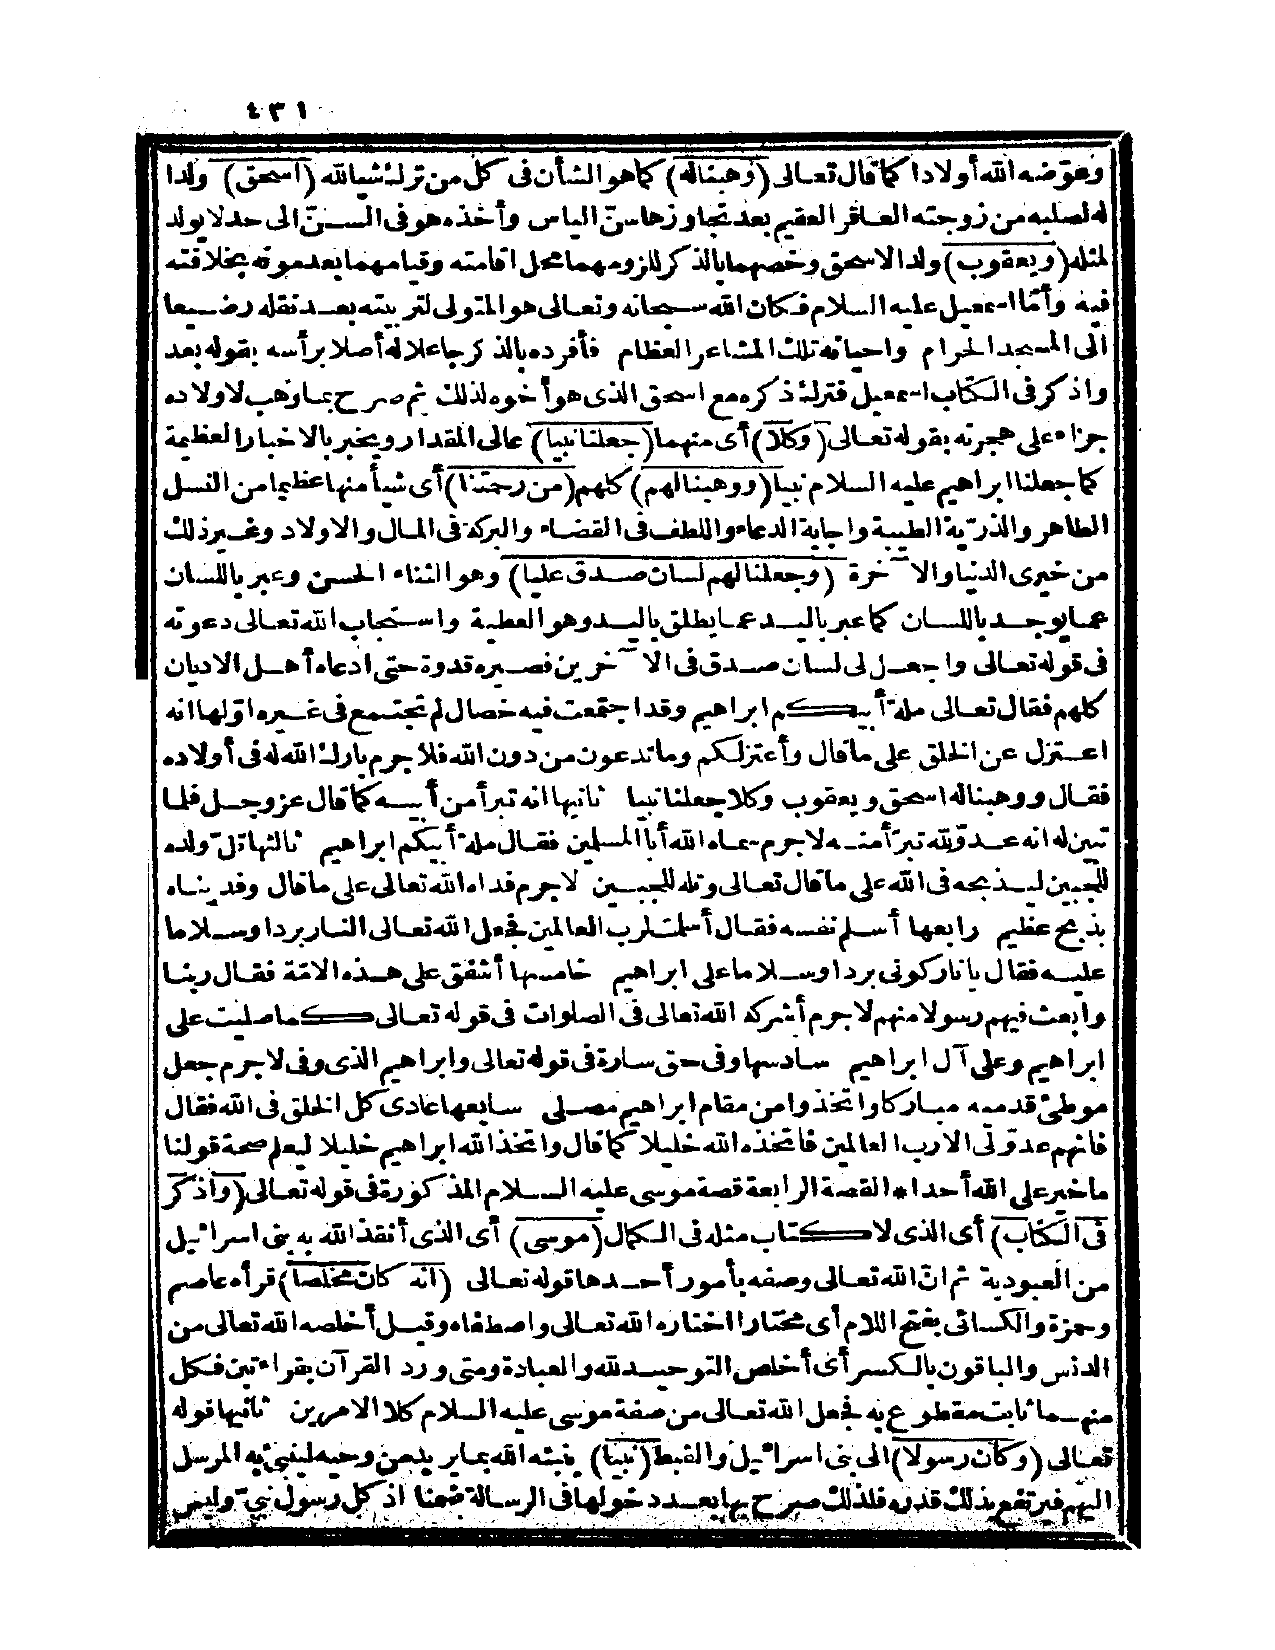 ٤٣١
وعوّضه الله أولادا كما قال تعالى (وهبنا له) كما هو الشأن فى كل من ترك شيأ لله (اسحق) ولدا
له لصلبه من زوجته العاقر العقيم بعد تجاوزها سنّ الياس وأخذه هو فى السنّ الى حد لا يولد
لمثله (ويعقوب) ولدا لاسحق وخصهما بالذكر للزومهما محل اقامته وقيامهما بعد موته بخلافته
فيه وأمّا اسمعيل عليه السلام فكان الله سبحانه وتعالى هو المتولى لتربيته بعد نقله رضيعا
الى المسجد الحرام واحيائه تلك المشاعر العظام فأفرده بالذكر جاعلا له أصلا برأسه بقوله بعد
واذكر فى الكتاب اسمعيل فترك ذكره مع اسحق الذى هو أخوه لذلك ثم صرح بما وهب لاولاده
جزاء على هجرته بقوله تعالى (وكلا) أى منهما (جعلنا نبيا) عالى المقدار ويخبر بالاخبار العظيمة
كما جعلنا ابراهيم عليه السلام نبيا (ووهبنا لهم) كلهم (من رحمتنا) أى شيأ منها عظيما من النسل
الطاهر والذرّية الطيبة واجابة الدعاء واللطف فى القضاء والبركة فى المال والاولاد وغير ذلك
من خيرى الدنيا والآخرة (وجعلنا لهم لسان صدق عليا) وهو الثناء الحسن وعبر باللسان
عما يوجد باللسان كما عبر باليد عما يطلق باليد وهو العطية واستجاب الله تعالى دعوته
فى قوله تعالى واجعل لى لسان صدق فى الآخرين فصيره قدوة حتى ادعاه أهل الاديان
كلهم فقال تعالى ملة أبيكم ابراهيم وقد اجتمعت فيه خصال لم تجتمع فى غيره اوّلها انه
اعتزل عن الخلق على ما قال وأعتزلكم وما تدعون من دون الله فلا جرم بارك الله له فى أولاده
فقال ووهبنا له اسحق ويعقوب وكلا جعلنا نبيا ثانيها انه تبرأ من أبيه كما قال عز وجل فلما
تبين له انه عدوّ لله تبرّأ منه لا جرم سماه الله أبا المسلمين فقال ملة أبيكم ابراهيم ثالثها تلّ ولده
للجبين ليذبحه فى الله على ما قال تعالى وتله للجبين لا جرم فداه الله تعالى على ما قال وفديناه
بذبح عظيم رابعها أسلم نفسه فقال أسلمت لرب العالمين فجعل الله تعالى النار بردا وسلاما
عليه فقال يا نار كونى بردا وسلاما على ابراهيم خامسها أشفق على هذه الامّة فقال ربنا
وابعث فيهم رسولا منهم لا جرم أشركه الله تعالى فى الصلوات فى قوله تعالى كما صليت على
ابراهيم وعلى آل ابراهيم سادسها وفى حق سارة فى قوله تعالى وابراهيم الذى وفى لا جرم جعل
موطئ قدميه مباركا واتخذوا من مقام ابراهيم مصلى سابعها عادى كل الخلق فى الله فقال
فانهم عدوّ لى الا رب العالمين فاتخذه الله خليلا كما قال واتخذ الله ابراهيم خليلا ليعلم صحة قولنا
ما خسر على الله أحد * القصة الرابعة قصة موسى عليه السلام المذكورة فى قوله تعالى (واذكر
فى الكتاب) أى الذى لا كتاب مثله فى الكمال (موسى) أى الذى أنقذ الله به بنى اسرائيل
من العبودية ثم انّ الله تعالى وصفه بأمور أحدها قوله تعالى (انه كان مخلصا) قرأه عاصم
وحمزة والكسائى بفتح اللام أى مختارا اختاره الله تعالى واصطفاه وقيل أخلصه الله تعالى من
الدنس والباقون بالكسر أى أخلص التوحيد لله والعبادة ومتى ورد القرآن بقراءتين فكل
منهما ثابت مقطوع به فجعل الله تعالى من صفة موسى عليه السلام كلا الامرين ثانيها قوله
تعالى (وكان رسولا) الى بنى اسرائيل والقبط (نبيا) ينبئه الله بما يريد من وحيه لينبئ به المرسل
اليهم فيرتفع بذلك قدره فلذلك صرح بها بعد دخولها فى الرسالة ضمنا اذ كل رسول نبىّ وليس